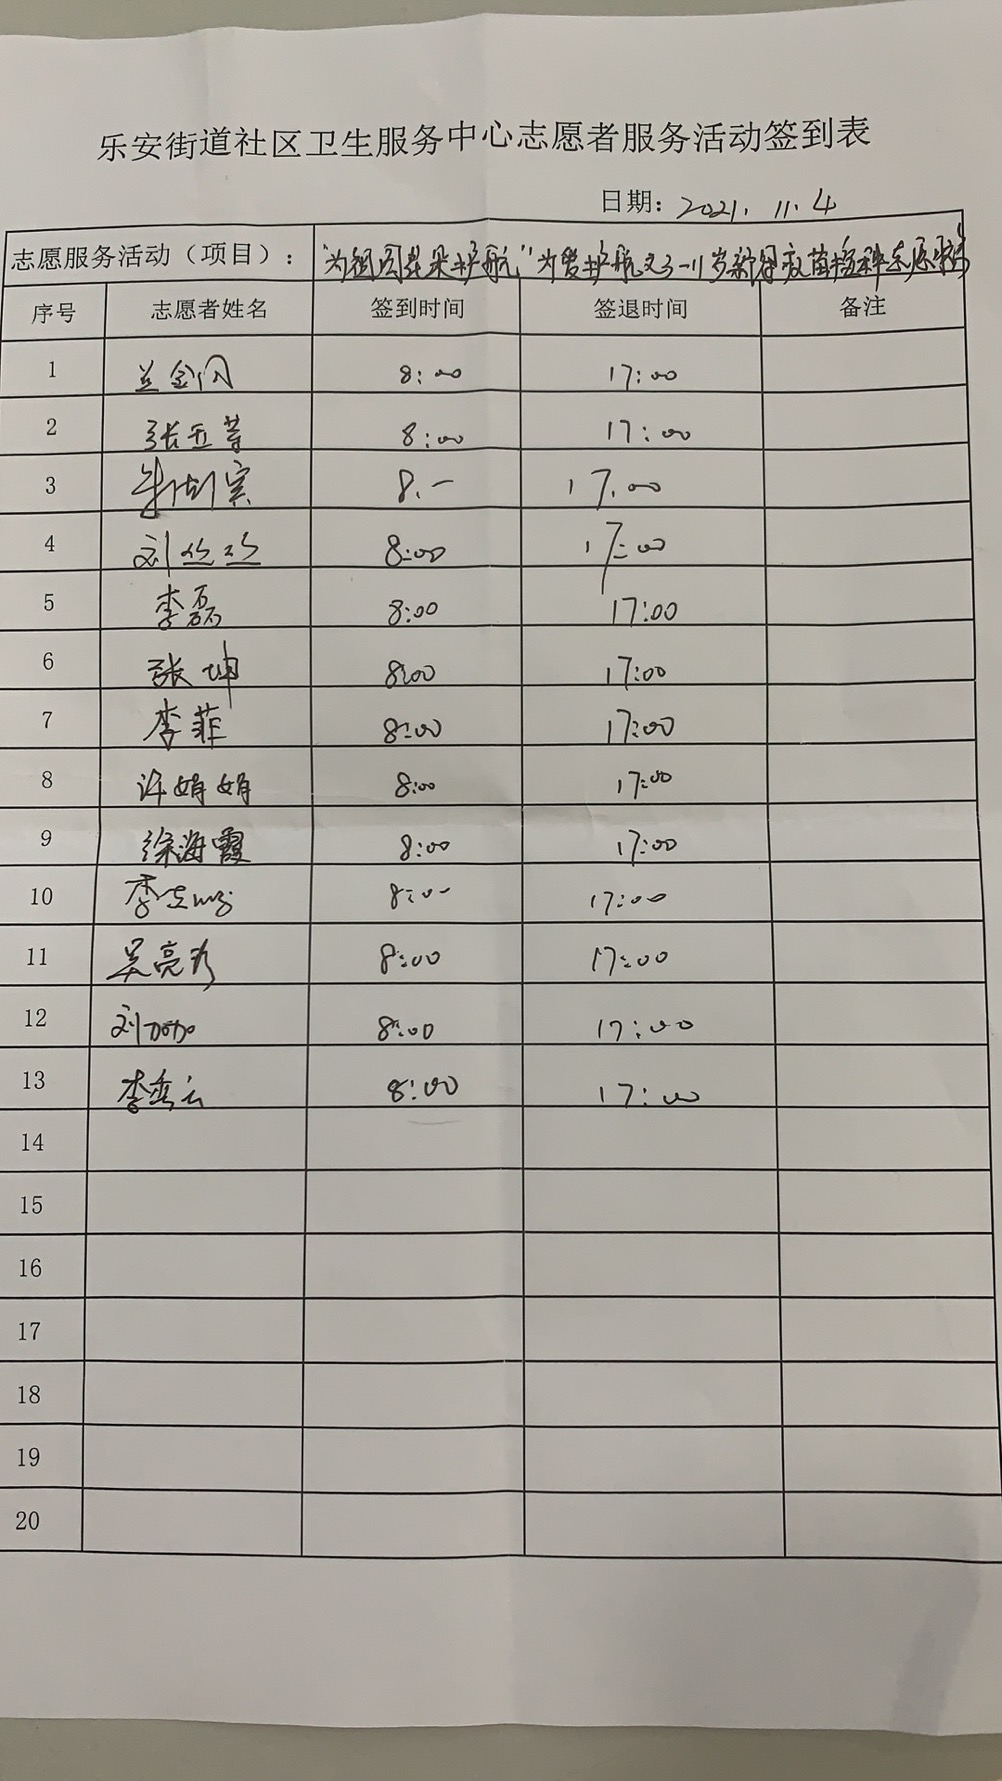 乐安街道社区卫生服务中心志愿者服务活动签到表
日期：2021.11.4
志愿服务活动（项目）： "为祖国花朵护航"为爱护航 3-11岁新冠疫苗接种志愿服务
序号 志愿者姓名 签到时间 签退时间 备注
1 兰金闪 8:00 17:00
2 张玉 8:00 17:00
3 8.- 17.00
4 刘丝丝 8:00 17:00
5 李磊 8:00 17:00
6 张坤 8:00 17:00
7 李菲 8:00 17:00
8 许娟娟 8:00 17:00
9 徐海霞 8:00 17:00
10 李 8:00 17:00
11 吴亮 8:00 17:00
12 刘 8:00 17:00
13 李秀云 8:00 17:00
14
15
16
17
18
19
20